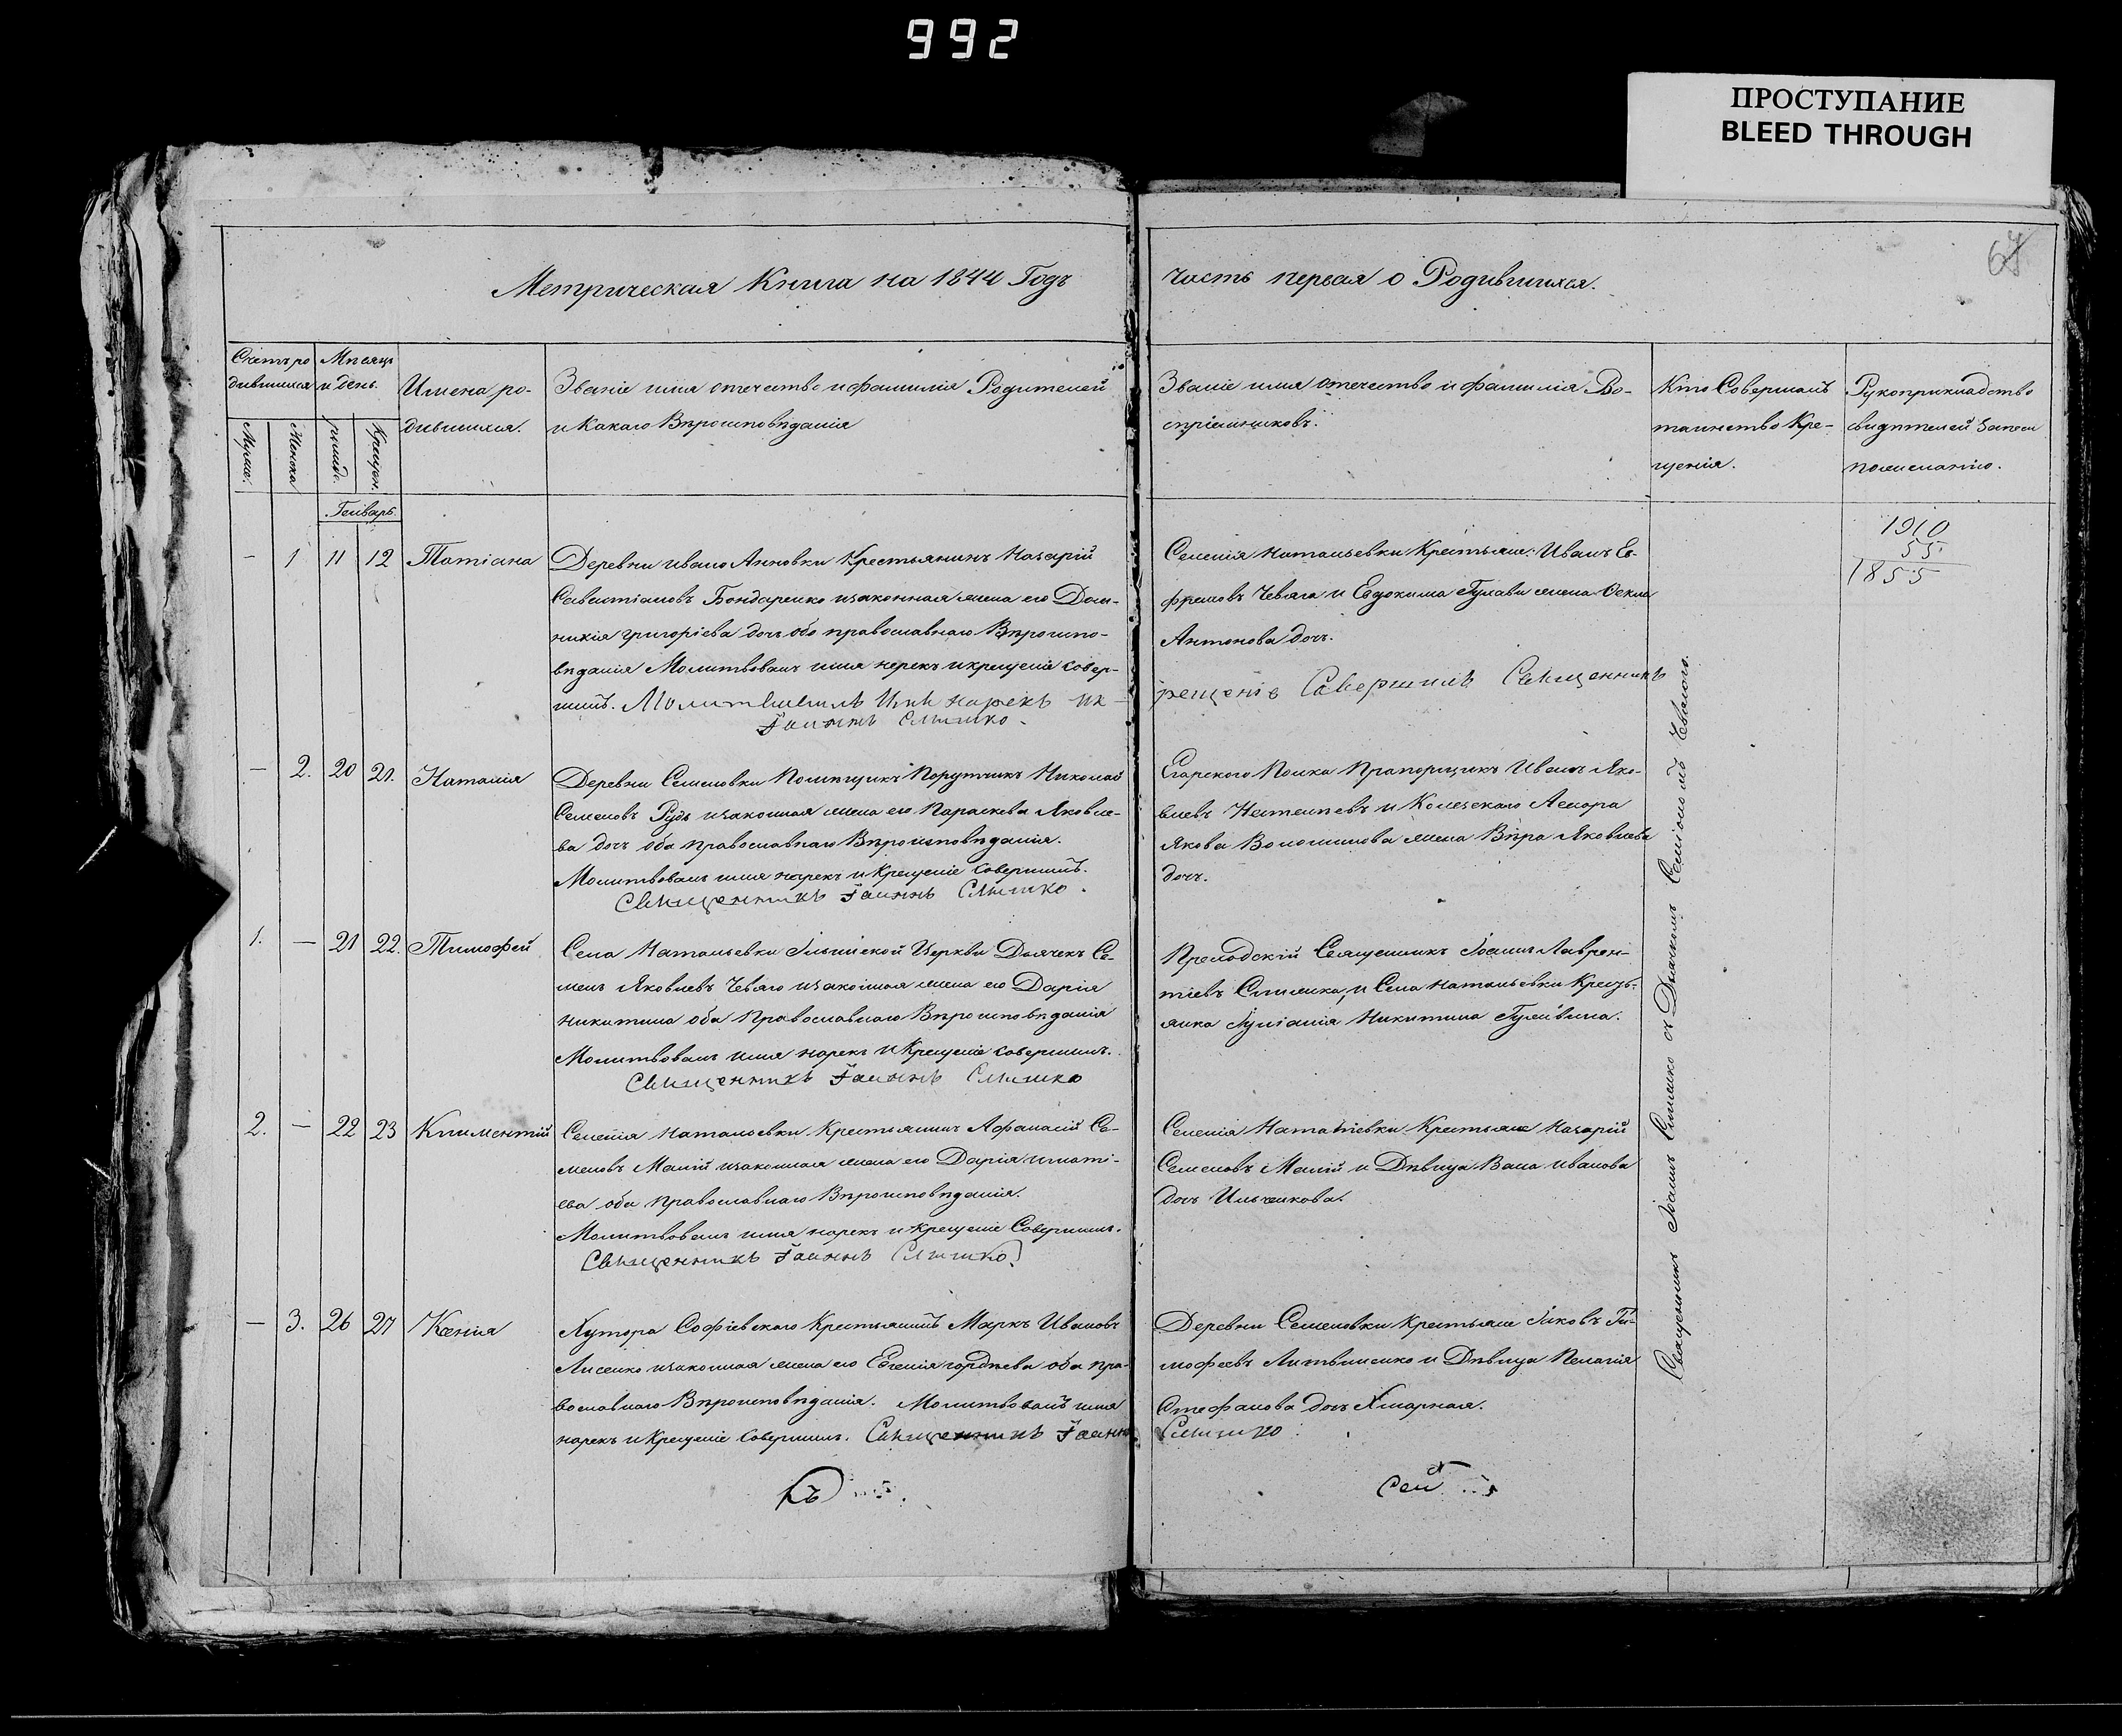 992
ПРОСТУПАНИЕ
BLEED THROUGH
Метрическая Книга на 1844 Годъ
часть первая о Родившихся.
Счетъ ро
дившихся
Мѣсяцъ
и день.
Имена ро-
дившихся.
Званіе имя отечество и фамилія Родителей
и Какаго Вѣроисповѣданія
Званіе имя отечество и фамилія Во-
спріемниковъ.
Кто Совершалъ
таинство Кре-
щенія.
Рукоприкладство
свидѣтелей записи
по желанію.
Мужес.
Женска
рожд.
Крещен.
Генварь.
1910
55.
1855
- 1 11 12 Татіана
Деревни Ивано Анновки Крестьянинъ Назарій
Савастіановъ Бондаренко изаконная жена его Дом-
никія григоріева дочь обо православнаго Вѣроиспо-
вѣданія Молитвовалъ имя нерекъ и крещеніе совер-
шилъ. Молитвивилъ Имя нарекъ ик
рещеніе Савершилъ Священникъ
Іаннъ Слишко.
Селенія Натальевки Крестьяне: Иванъ Ев-
фремовъ Чевяга и Евдокима Гулави жена Фекла
Антонова дочь.
- 2. 20 21. Наталія
Деревни Семеновки Помѣщикъ Порутчикъ Николай
Семеновъ Рудь изаконная жена его Параскева Яковле-
ва дочь оба православнаго Вѣроисповѣданія.
Молитвовалъ имя нарекъ и Крещеніе Совершилъ.
Священникъ Іаннъ Слишко.
Егарского Полка Прапорщикъ Иванъ Яко-
влевъ и Колезскаго
Якова Волошинова жена Вѣра Яковлева
дочь.
1. - 21 22. Тимофей
Села Натальевки Ильинской Церкви Дьячекъ Се-
менъ Яковлевъ Чевяго изаконная жена его Дарія
Никитина оба Православнаго Вѣроисповѣданія
Молитвовалъ имя нарекъ и Крещеніе совершилъ.
Священникъ Іаннъ Слишко
Священникъ Іоаннъ Лаврен-
тіевъ Слишка, и Села Натальевки Кресть-
янка Іуліанія Никитина
2. - 22 23 Климентій
Селенія Натальевки Крестьянинъ Афанасій Се-
меновъ Малій изаконная жена его Дарія игнаті-
ева оба православнаго Вѣроисповѣданія.
Молитвовалъ имя нарекъ и крещеніе Совершилъ.
Священникъ Іаннъ Слишко.
Селенія Наталіевки Крестьяне Назарій
Семеновъ Малій и Дѣвица Васа иванова
дочь Ильченкова.
- 3. 26 27 Ксенія
Хутора Софіевскаго Крестьянинъ Маркъ Ивановъ
Лисенко изаконная жена его Евгенія гордѣева оба пра-
вославнаго Вѣроисповѣданія. Молитвовалъ имя
нарекъ и Крещеніе Совершилъ. Священникъ Іаннъ
Слишко
Деревни Семеновки крестьяне Іяковъ Ти-
мофеевъ Литвиненко и Дѣвица Пелагія
Стефанова дочь Хмарная.
Къ
сей
Священникъ Іоаннъ Слишко съ Дьячкомъ Семіономъ Чевягою.